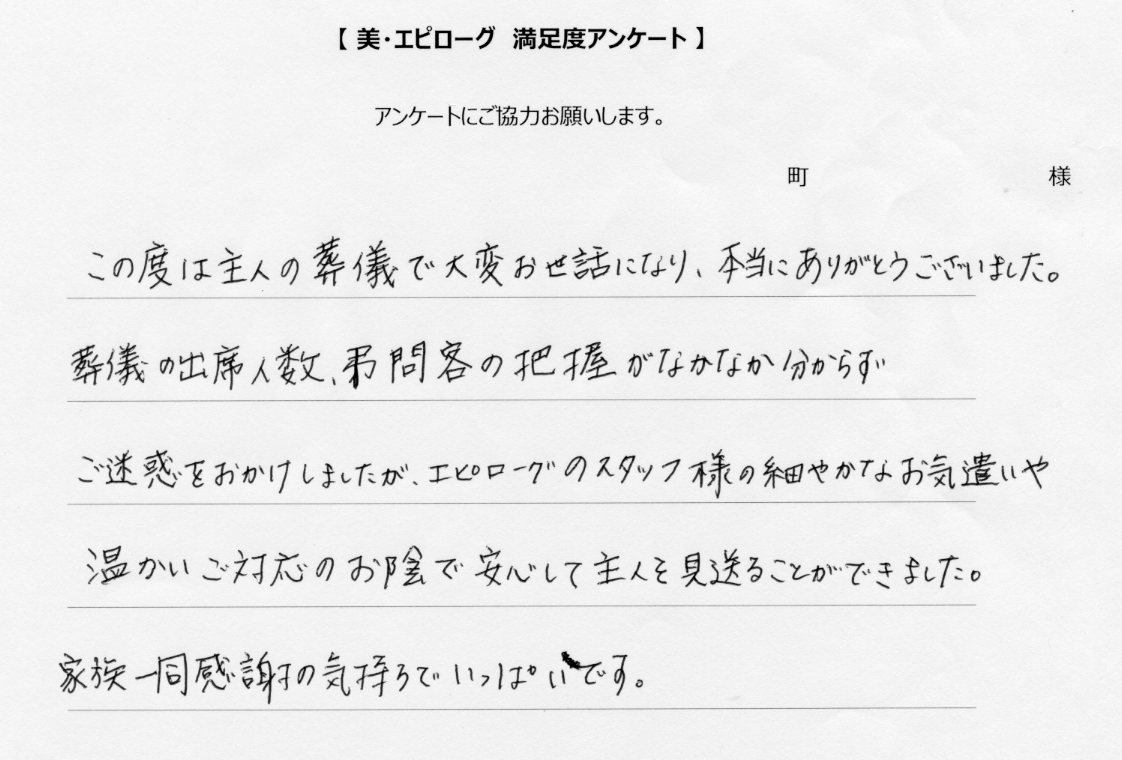 【 美・エピローグ 満足度アンケート 】
アンケートにご協力お願いします。
町 様
この度は主人の葬儀で大変お世話になり、本当にありがとうございました。
葬儀の出席人数、弔問客の把握がなかなか分からず
ご迷惑をおかけしましたが、エピローグのスタッフ様の細やかなお気遣いや
温かいご対応のお陰で安心して主人を見送ることができました。
家族一同感謝の気持ちでいっぱいです。